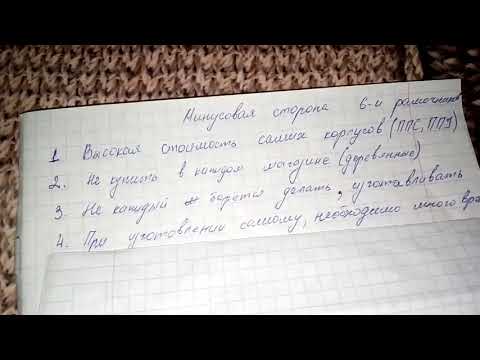 Минусовая сторона 6-и рамочников
1 Высокая стоимость самих корпусов (ППС, ППУ)
2. Не купить в каждом магазине (деревянные)
3. Не каждый берется делать, изготавливать
4. При изготовлении самому, необходимо много вре